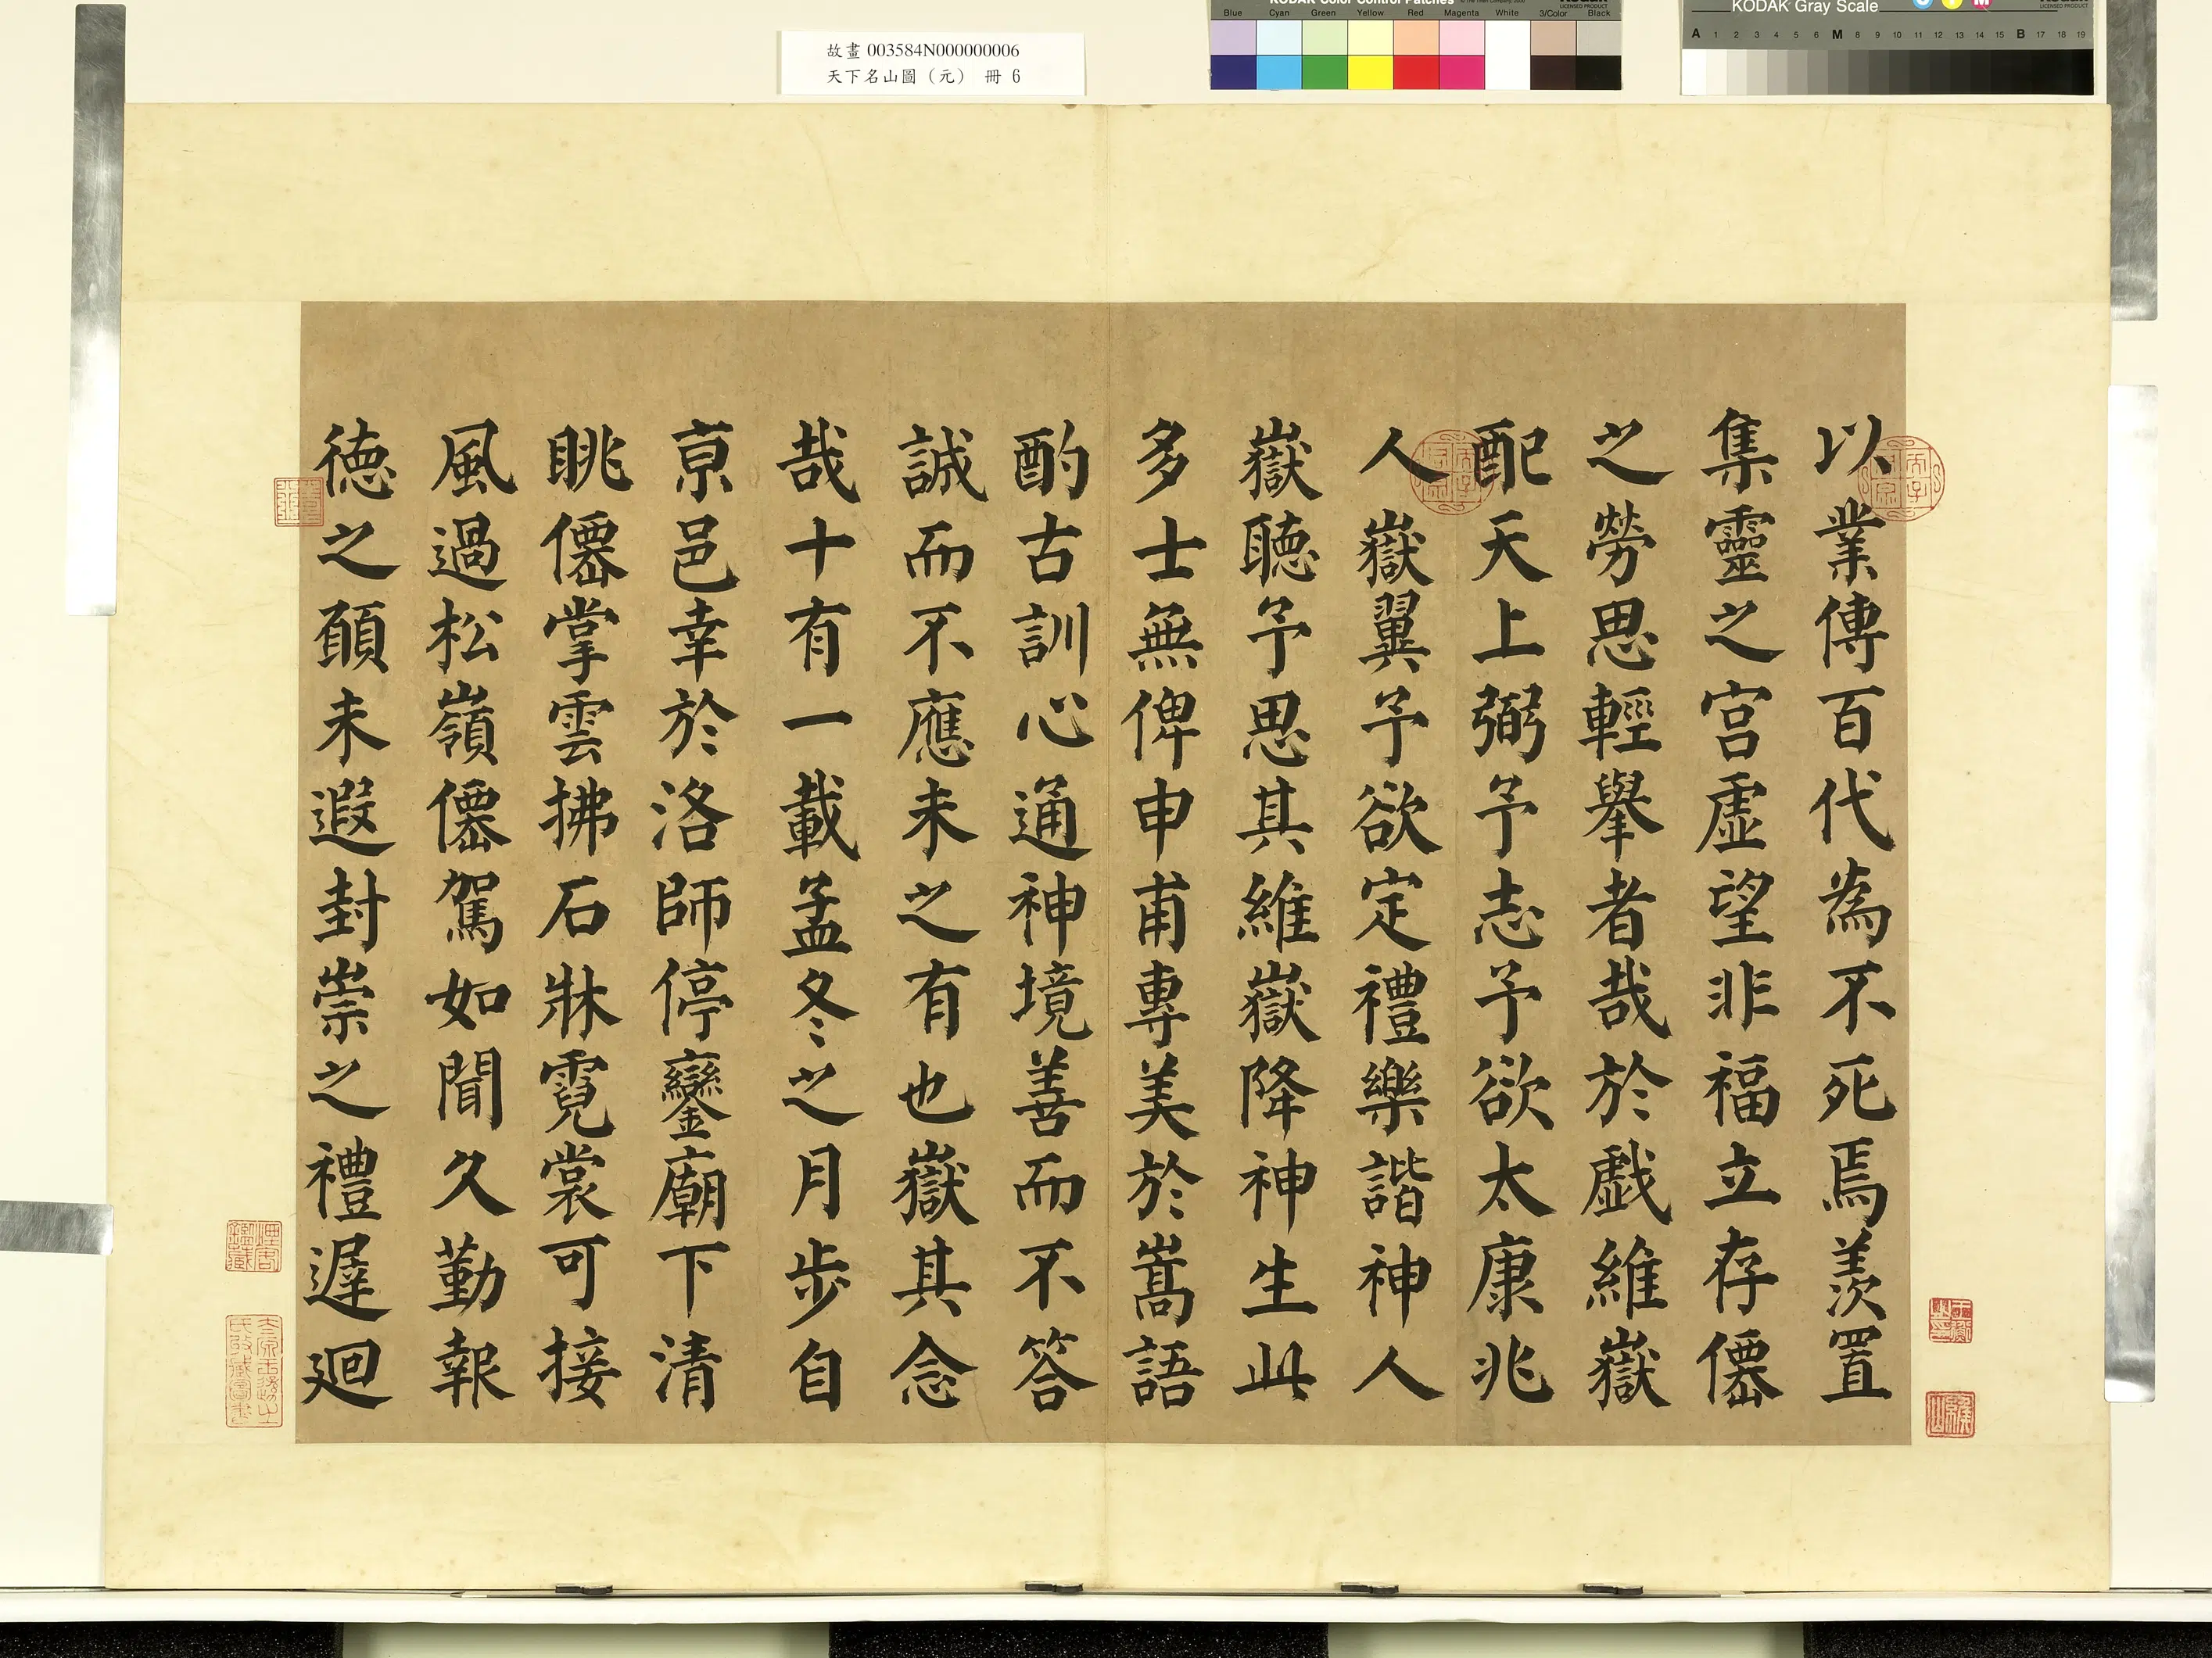 故畫 003584N000000006
天下名山圖（元） 冊 6
KODAK Color Control Patches
Blue Cyan Green Yellow Red Magenta White 3/Color Black
KODAK Gray Scale
A 1 2 3 4 5 6 M 8 9 10 11 12 13 14 15 B 17 18 19
以業傳百代為不死焉羨置
集靈之宮虛望非福立存僊
之勞思輕舉者哉於戲維嶽
配天上弼予志予欲太康兆
人嶽翼予欲定禮樂諧神人
嶽聽予思其維嶽降神生此
多士無俾申甫專美於嵩語
酌古訓心通神境善而不答
誠而不應未之有也嶽其念
哉十有一載孟冬之月步自
京邑幸於洛師停鑾廟下清
眺僊掌雲拂石牀霓裳可接
風過松嶺僊駕如聞久勤報
德之願未遐封崇之禮遲迴